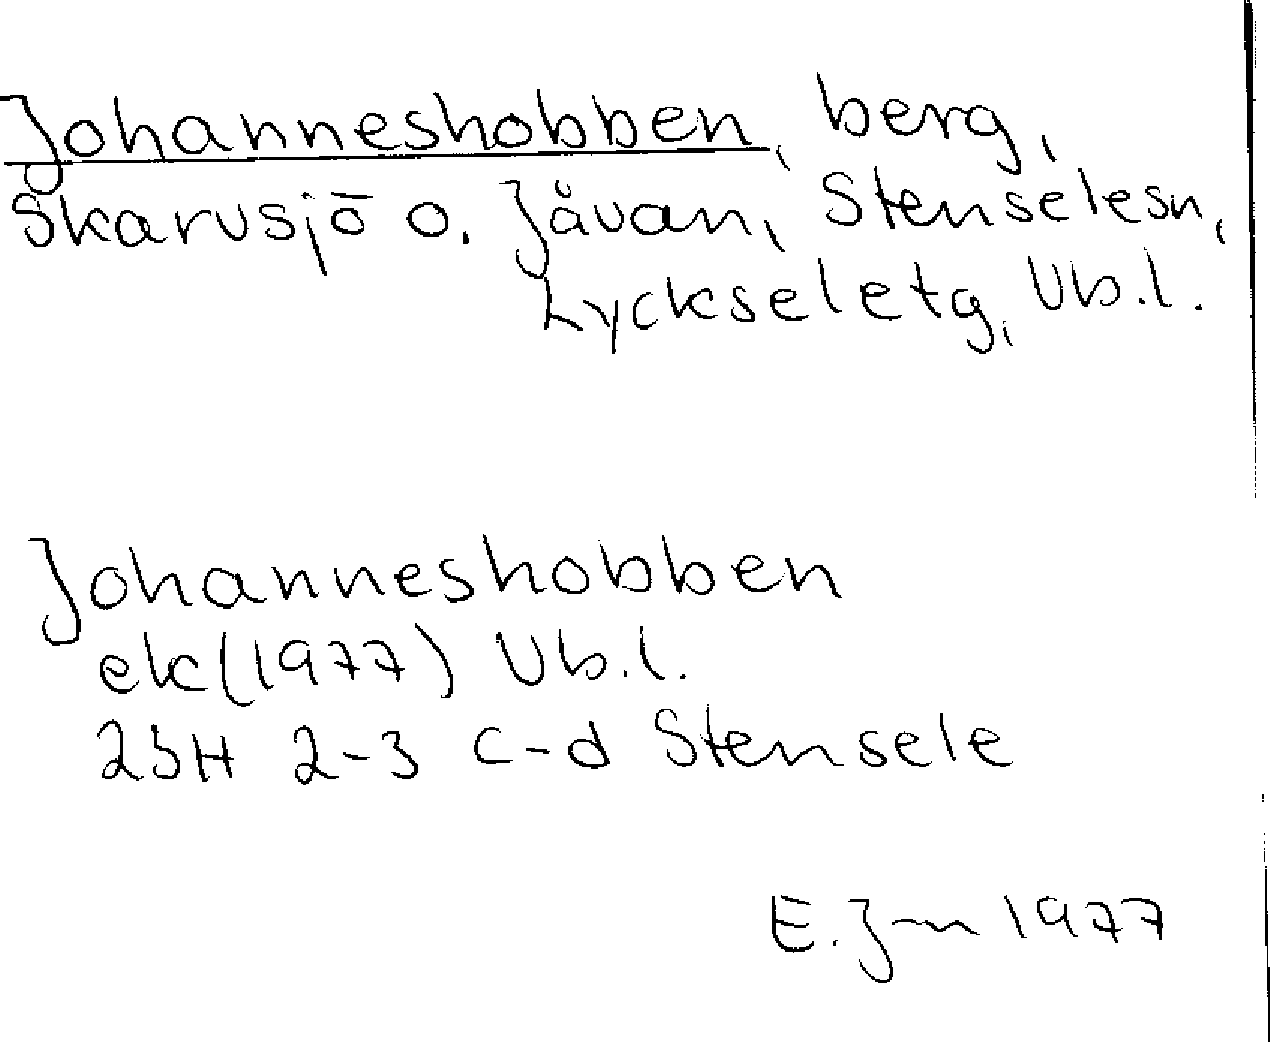 Johanneshobben, berg,
Skarvsjö o. Jåvan, Stenselesn,
Lyckseletg, Vb.l.
Johanneshobben
ek(1977) Vb.l.
23H 2-3 c-d Stensele
E. Jn 1977